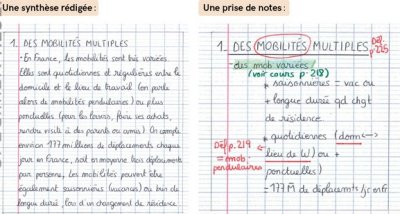 Une synthèse rédigée :
1. DES MOBILITÉS MULTIPLES
- En France, les mobilités sont très variées.
Elles sont quotidiennes et régulières entre le
domicile et le lieu de travail (on parle
alors de mobilités pendulaires) ou plus
ponctuelles (pour les loisirs, faire ses achats,
rendre visite à des parents ou amis). On compte
environ 177 millions de déplacements chaque
jour en France, soit en moyenne trois déplacements
par personne. Les mobilités peuvent être
également saisonnières (vacances) ou bien de
longue durée, lors d'un changement de résidence.
Une prise de notes :
1. DES MOBILITÉS MULTIPLES
Déf. p. 225
- des mob variées
(voir cours p. 218)
* saisonnières = vac ou
+ longue durée qd chgt
de résidence
* quotidiennes (dom ↔
lieu de W) ou +
ponctuelles)
Déf p. 219
= mob.
pendulaires
= 177 M de déplacemts / jr en Fr